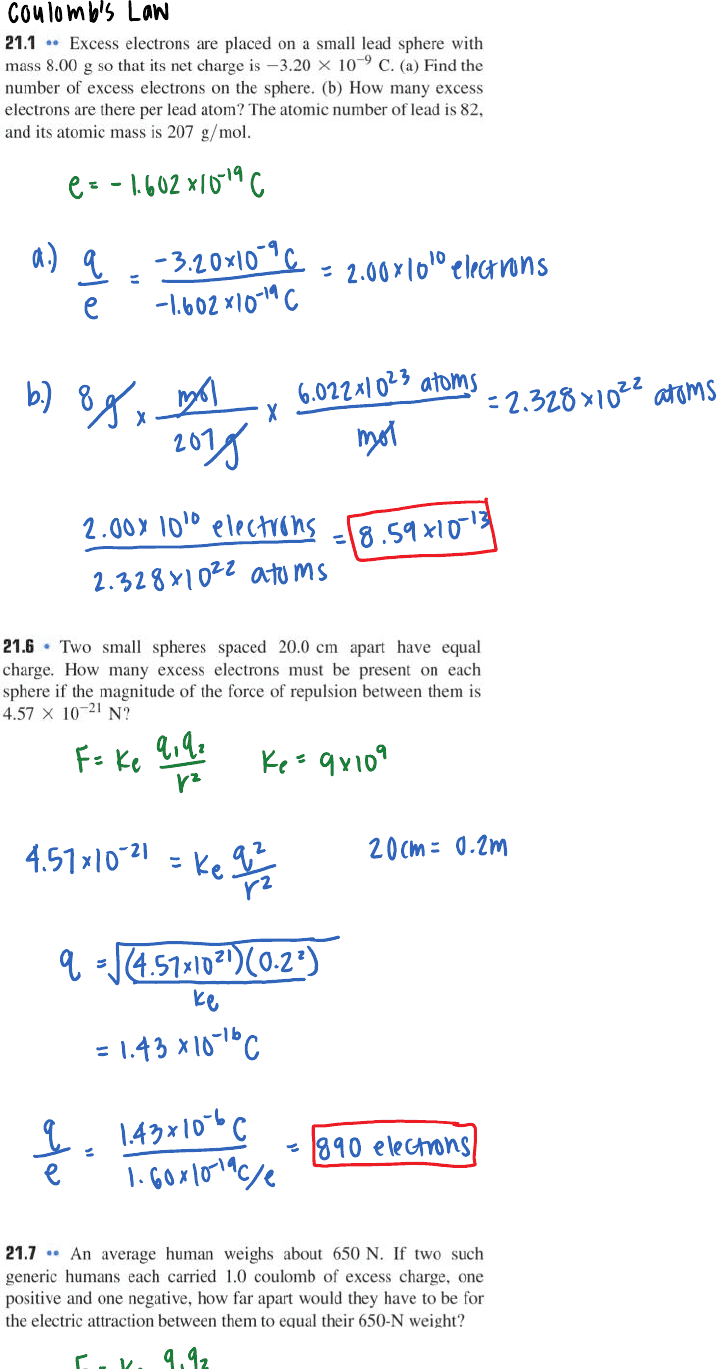 Coulomb's Law
21.1 •• Excess electrons are placed on a small lead sphere with
mass 8.00 g so that its net charge is −3.20 × 10⁻⁹ C. (a) Find the
number of excess electrons on the sphere. (b) How many excess
electrons are there per lead atom? The atomic number of lead is 82,
and its atomic mass is 207 g/mol.
e = - 1.602 x10⁻¹⁹ C
a.) q/e = -3.20x10⁻⁹ C / -1.602 x10⁻¹⁹ C = 2.00x10¹⁰ electrons
b.) 8g x mol/207g x 6.022x10²³ atoms/mol = 2.328x10²² atoms
2.00x 10¹⁰ electrons / 2.328x10²² atoms = 8.59x10⁻¹³
21.6 • Two small spheres spaced 20.0 cm apart have equal
charge. How many excess electrons must be present on each
sphere if the magnitude of the force of repulsion between them is
4.57 × 10⁻²¹ N?
F = Ke q₁q₂/r² Ke = 9x10⁹
4.57x10⁻²¹ = Ke q²/r² 20cm = 0.2m
q = √(4.57x10²¹)(0.2²)/Ke
= 1.43 x10⁻¹⁶ C
q/e = 1.43x10⁻⁶ C / 1.60x10⁻¹⁹ C/e = 890 electrons
21.7 •• An average human weighs about 650 N. If two such
generic humans each carried 1.0 coulomb of excess charge, one
positive and one negative, how far apart would they have to be for
the electric attraction between them to equal their 650-N weight?